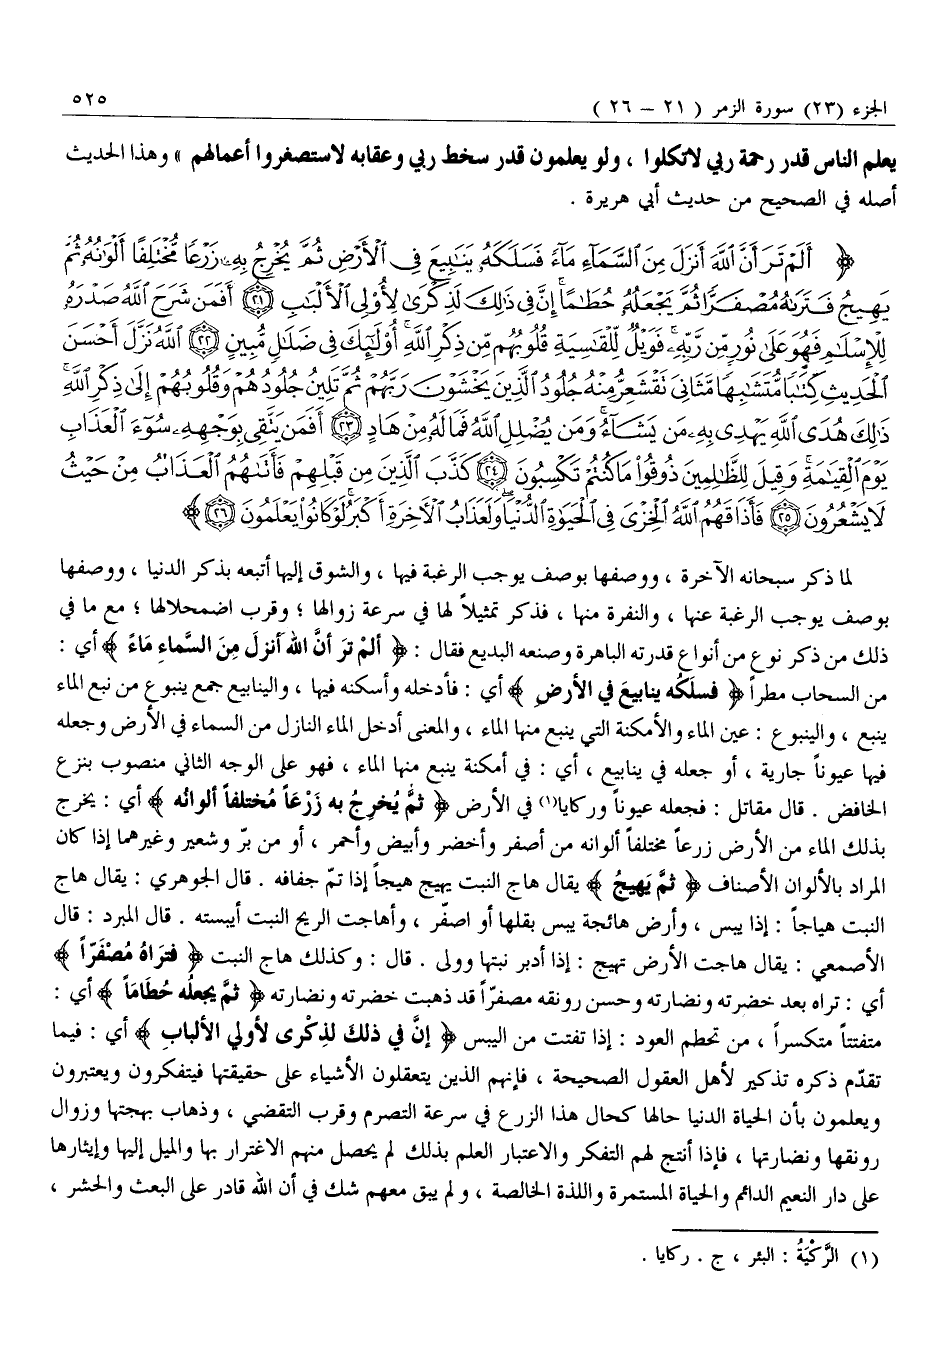 الجزء (٢٣) سورة الزمر ( ٢١ – ٢٦ ) ٥٢٥
يعلم الناس قدر رحمة ربي لاتكلوا ، ولو يعلمون قدر سخط ربي وعقابه لاستصغروا أعمالهم » وهذا الحديث
أصله في الصحيح من حديث أبي هريرة .
﴿ أَلَمْ تَرَ أَنَّ اللَّهَ أَنزَلَ مِنَ السَّمَاءِ مَاءً فَسَلَكَهُ يَنَابِيعَ فِي الْأَرْضِ ثُمَّ يُخْرِجُ بِهِ زَرْعًا مُّخْتَلِفًا أَلْوَانُهُ ثُمَّ
يَهِيجُ فَتَرَاهُ مُصْفَرًّا ثُمَّ يَجْعَلُهُ حُطَامًا إِنَّ فِي ذَلِكَ لَذِكْرَى لِأُولِي الْأَلْبَابِ ﴿٢١﴾ أَفَمَن شَرَحَ اللَّهُ صَدْرَهُ
لِلْإِسْلَامِ فَهُوَ عَلَى نُورٍ مِّن رَّبِّهِ فَوَيْلٌ لِّلْقَاسِيَةِ قُلُوبُهُم مِّن ذِكْرِ اللَّهِ أُوْلَئِكَ فِي ضَلَالٍ مُّبِينٍ ﴿٢٢﴾ اللَّهُ نَزَّلَ أَحْسَنَ
الْحَدِيثِ كِتَابًا مُّتَشَابِهًا مَّثَانِيَ تَقْشَعِرُّ مِنْهُ جُلُودُ الَّذِينَ يَخْشَوْنَ رَبَّهُمْ ثُمَّ تَلِينُ جُلُودُهُمْ وَقُلُوبُهُمْ إِلَى ذِكْرِ اللَّهِ
ذَلِكَ هُدَى اللَّهِ يَهْدِي بِهِ مَن يَشَاءُ وَمَن يُضْلِلِ اللَّهُ فَمَا لَهُ مِنْ هَادٍ ﴿٢٣﴾ أَفَمَن يَتَّقِي بِوَجْهِهِ سُوءَ الْعَذَابِ
يَوْمَ الْقِيَامَةِ وَقِيلَ لِلظَّالِمِينَ ذُوقُوا مَا كُنتُمْ تَكْسِبُونَ ﴿٢٤﴾ كَذَّبَ الَّذِينَ مِن قَبْلِهِمْ فَأَتَاهُمُ الْعَذَابُ مِنْ حَيْثُ
لَا يَشْعُرُونَ ﴿٢٥﴾ فَأَذَاقَهُمُ اللَّهُ الْخِزْيَ فِي الْحَيَاةِ الدُّنْيَا وَلَعَذَابُ الْآخِرَةِ أَكْبَرُ لَوْ كَانُوا يَعْلَمُونَ ﴿٢٦﴾ ﴾
لما ذكر سبحانه الآخرة ، ووصفها بوصف يوجب الرغبة فيها ، والشوق إليها أتبعه بذكر الدنيا ، ووصفها
بوصف يوجب الرغبة عنها ، والنفرة منها ، فذكر تمثيلاً لها في سرعة زوالها ؛ وقرب اضمحلالها ؛ مع ما في
ذلك من ذكر نوع من أنواع قدرته الباهرة وصنعه البديع فقال : ﴿ ألمْ تَرَ أنَّ الله أنزلَ مِنَ السَّماءِ مَاءً ﴾ أي :
من السحاب مطراً ﴿ فسلَكَه ينابيعَ في الأرضِ ﴾ أي : فأدخله وأسكنه فيها ، والينابيع جمع ينبوع من نبع الماء
ينبع ، والينبوع : عين الماء والأمكنة التي ينبع منها الماء ، والمعنى أدخل الماء النازل من السماء في الأرض وجعله
فيها عيوناً جارية ، أو جعله في ينابيع ، أي : في أمكنة ينبع منها الماء ، فهو على الوجه الثاني منصوب بنزع
الخافض . قال مقاتل : فجعله عيوناً وركايا(١) في الأرض ﴿ ثمَّ يُخرِجُ به زَرْعَاً مُختلفاً ألوانُه ﴾ أي : يخرج
بذلك الماء من الأرض زرعاً مختلفاً ألوانه من أصفر وأخضر وأبيض وأحمر ، أو من برّ وشعير وغيرهما إذا كان
المراد بالألوان الأصناف ﴿ ثمَّ يَهيجُ ﴾ يقال هاج النبت يهيج هيجاً إذا تمّ جفافه . قال الجوهري : يقال هاج
النبت هياجاً : إذا يبس ، وأرض هائجة يبس بقلها أو اصفّر ، وأهاجت الريح النبت أيبسته . قال المبرد : قال
الأصمعي : يقال هاجت الأرض تهيج : إذا أدبر نبتها وولى . قال : وكذلك هاج النبت ﴿ فتَراهُ مُصْفَرّاً ﴾
أي : تراه بعد خضرته ونضارته وحسن رونقه مصفرّاً قد ذهبت خضرته ونضارته ﴿ ثمَّ يجعلُه حُطَامَاً ﴾ أي :
متفتتاً متكسراً ، من تحطم العود : إذا تفتت من اليبس ﴿ إنَّ في ذلكَ لذِكْرى لأولي الألبابِ ﴾ أي : فيما
تقدّم ذكره تذكير لأهل العقول الصحيحة ، فإنهم الذين يتعقلون الأشياء على حقيقتها فيتفكرون ويعتبرون
ويعلمون بأن الحياة الدنيا حالها كحال هذا الزرع في سرعة التصرم وقرب التقضي ، وذهاب بهجتها وزوال
رونقها ونضارتها ، فإذا أنتج لهم التفكر والاعتبار العلم بذلك لم يحصل منهم الاغترار بها والميل إليها وإيثارها
على دار النعيم الدائم والحياة المستمرة واللذة الخالصة ، ولم يبق معهم شك في أن الله قادر على البعث والحشر ،
(١) الرَّكْيَةُ : البئر ، ج . ركايا .